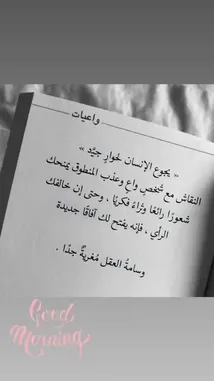 واعيات
« يجوع الإنسان لحوارٍ جيّد »
النقاش مع شخصٍ واعٍ وعذب المنطوق يمنحك
شعورًا رائعًا وثراءً فكريًا ، وحتى إن خالفك
الرأي ، فإنه يفتح لك آفاقًا جديدة
وسامةُ العقل مُغريةٌ جدًا .
Good
Morning